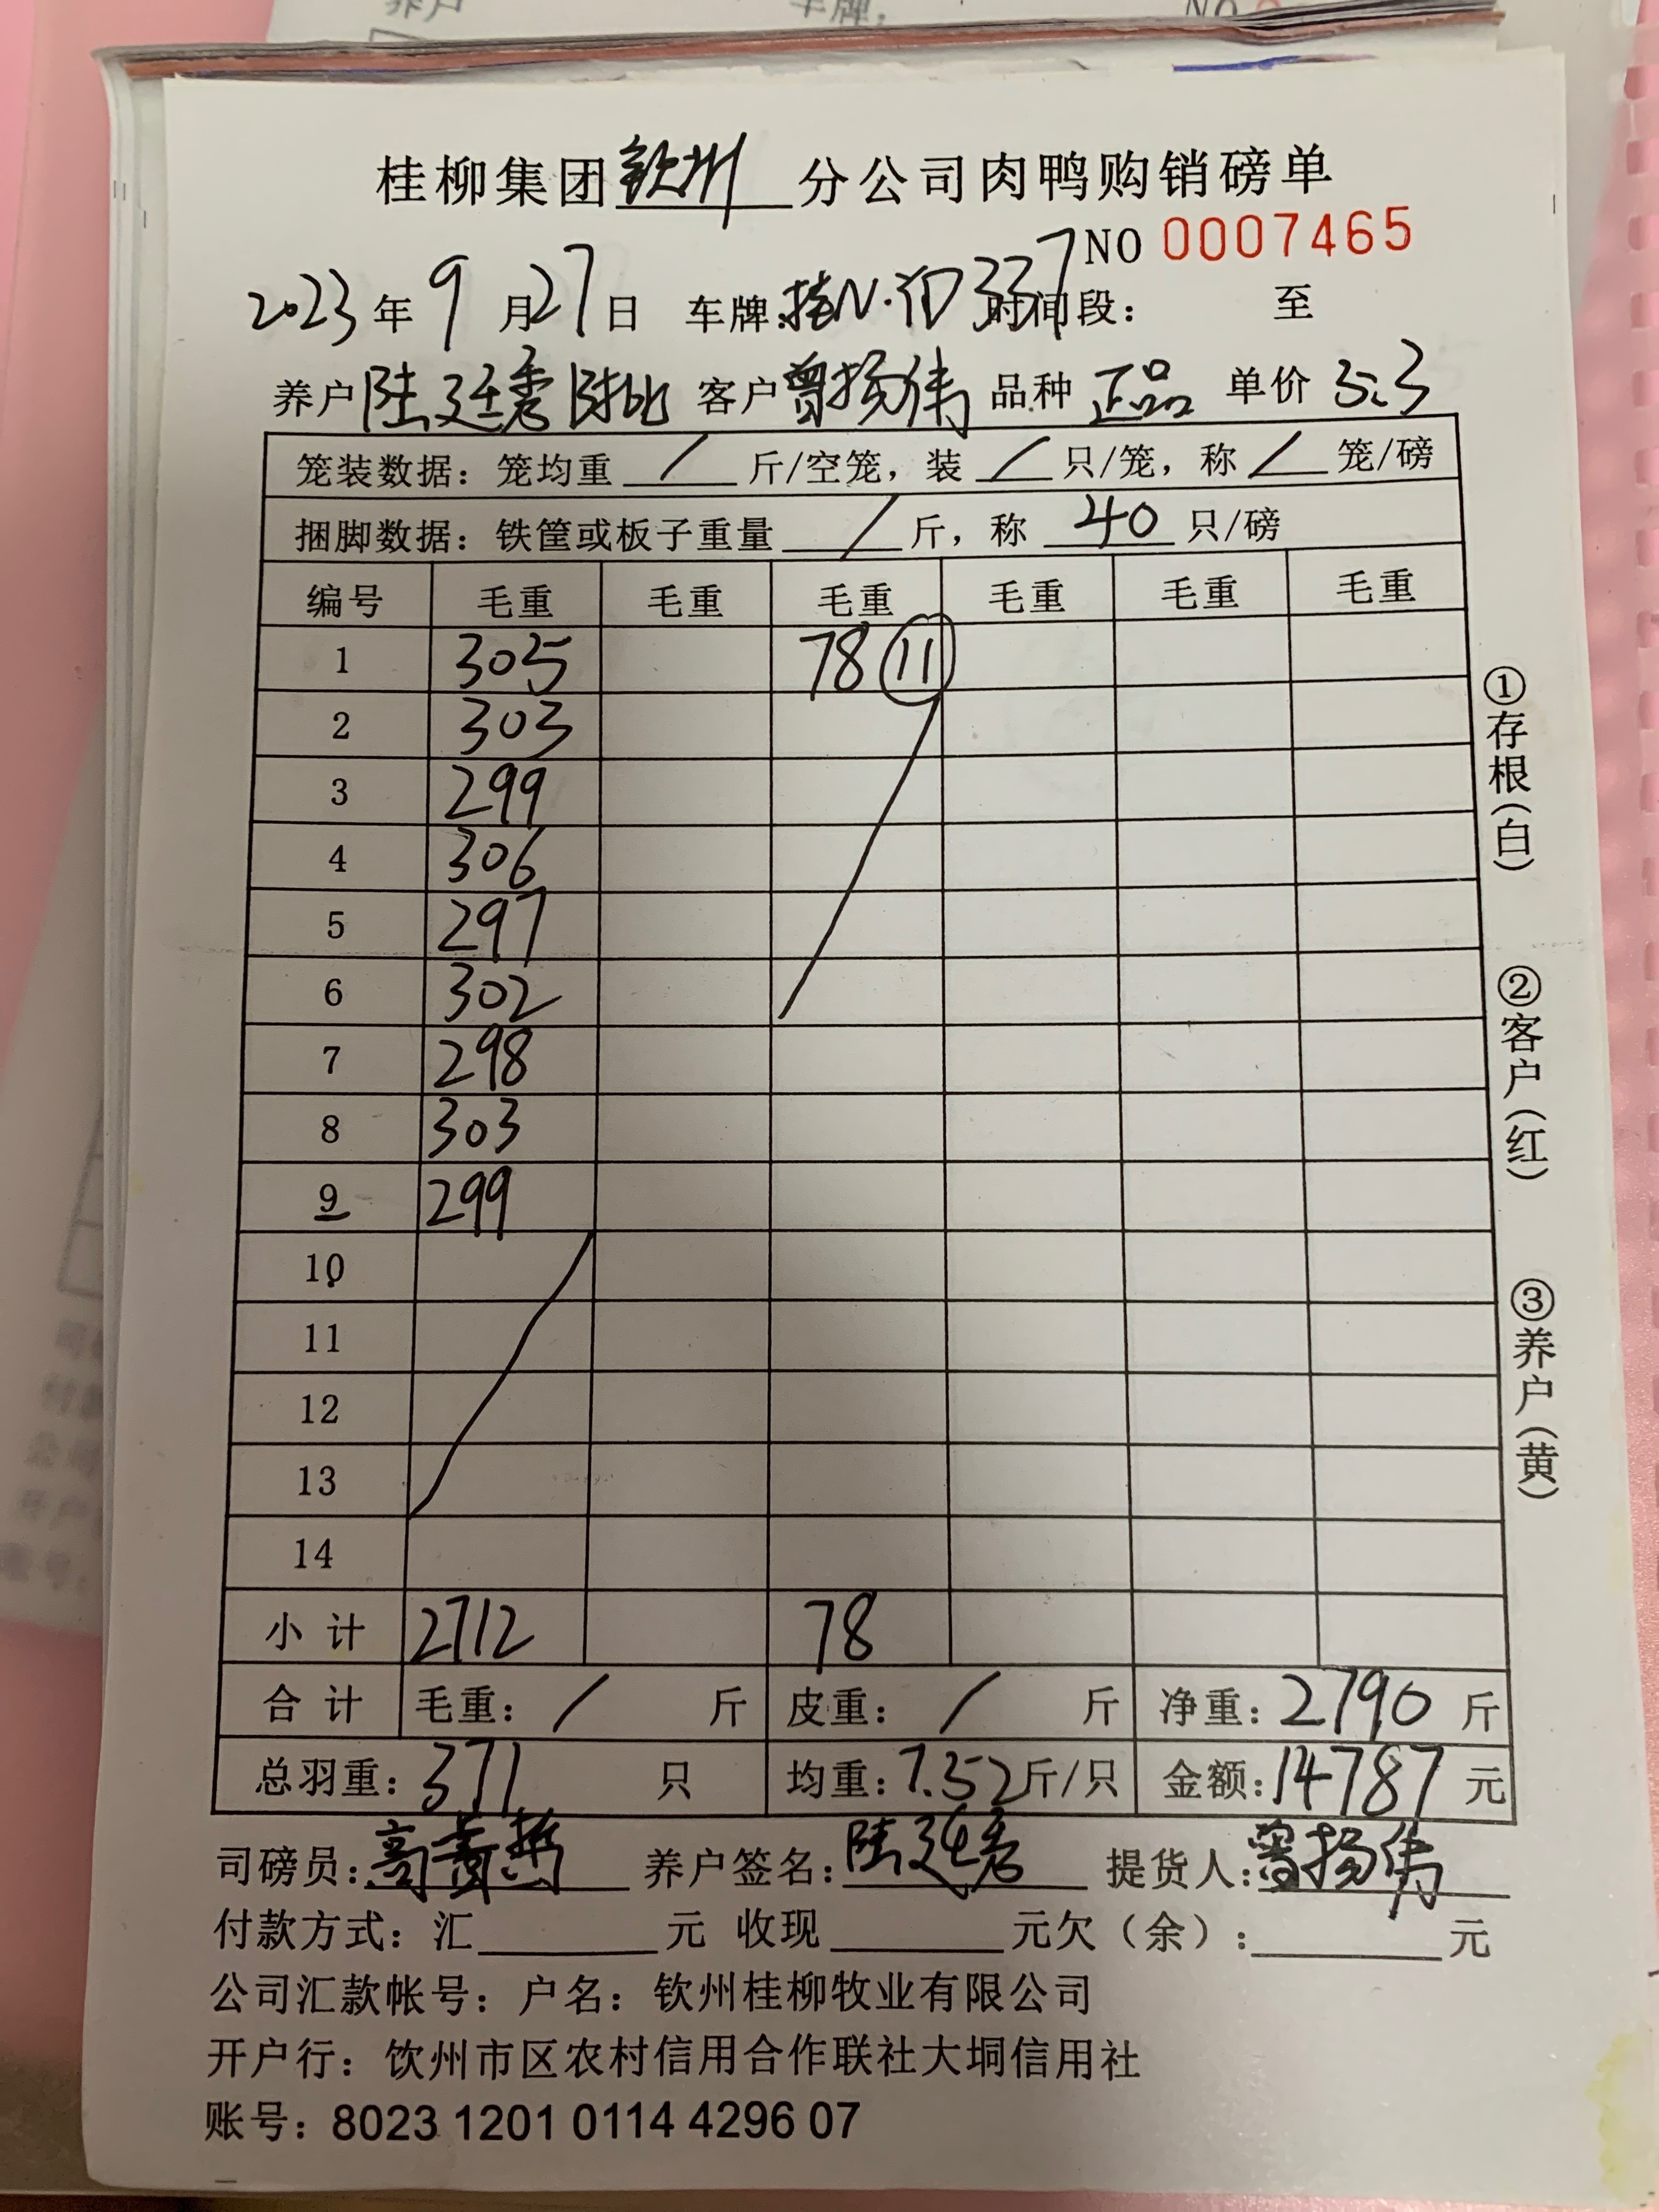 养户 车牌: NO
桂柳集团钦州分公司肉鸭购销磅单
NO 0007465
2023年9月27日 车牌:桂N·D337 时间段: 至
养户 陆廷秀 客户 曾扬伟 品种 正品 单价 5.3
笼装数据: 笼均重 / 斤/空笼, 装 / 只/笼, 称 / 笼/磅
捆脚数据: 铁筐或板子重量 / 斤, 称 40 只/磅
编号 毛重 毛重 毛重 毛重 毛重 毛重
1 305 78 ⑪
2 303
3 299
4 306
5 297
6 302
7 298
8 303
9 299
10
11
12
13
14
小计 2712 78
合计 毛重: / 斤 皮重: / 斤 净重: 2790 斤
总羽重: 371 只 均重: 7.52 斤/只 金额: 14787 元
司磅员: 养户签名: 陆廷秀 提货人: 曾扬伟
付款方式: 汇 元 收现 元欠(余): 元
公司汇款帐号: 户名: 钦州桂柳牧业有限公司
开户行: 钦州市区农村信用合作联社大垌信用社
账号: 8023 1201 0114 4296 07
①存根(白)
②客户(红)
③养户(黄)